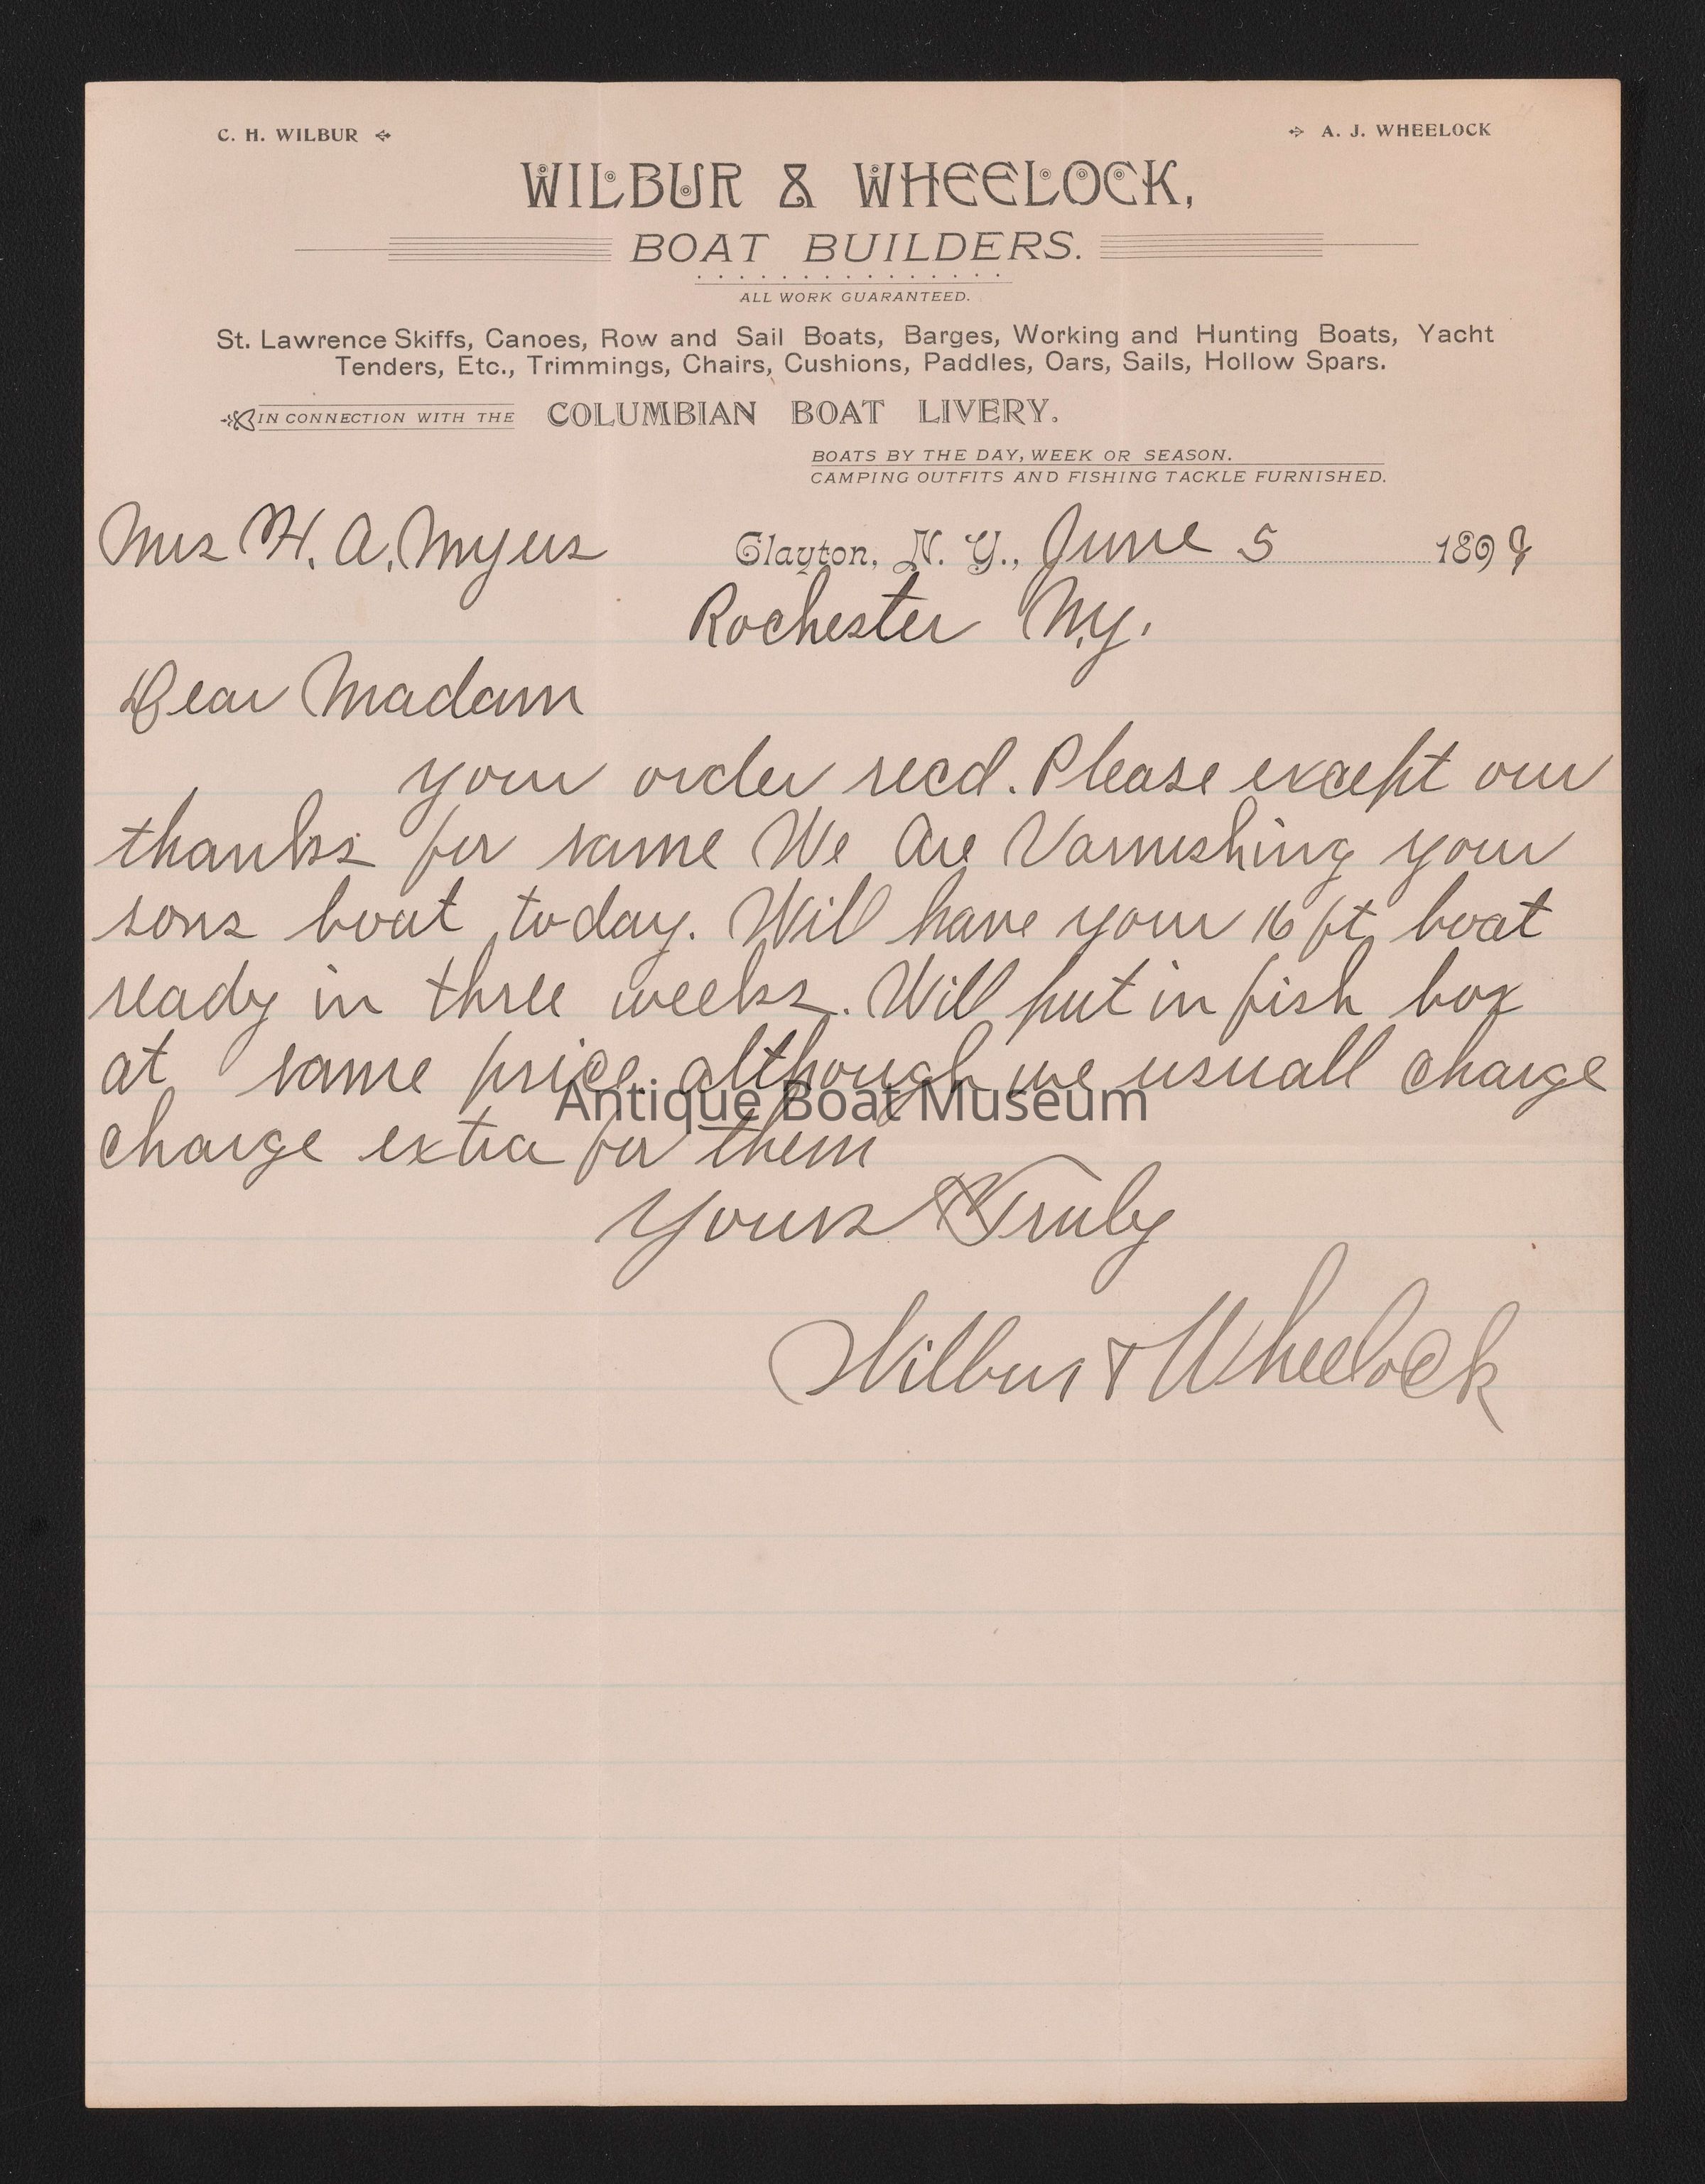 C. H. WILBUR A. J. WHEELOCK
WILBUR & WHEELOCK,
BOAT BUILDERS.
ALL WORK GUARANTEED.
St. Lawrence Skiffs, Canoes, Row and Sail Boats, Barges, Working and Hunting Boats, Yacht
Tenders, Etc., Trimmings, Chairs, Cushions, Paddles, Oars, Sails, Hollow Spars.
IN CONNECTION WITH THE COLUMBIAN BOAT LIVERY.
BOATS BY THE DAY, WEEK OR SEASON.
CAMPING OUTFITS AND FISHING TACKLE FURNISHED.
Mrs H. A. Myers Clayton, N. Y., June 5 189
Rochester N.y.
Dear Madam
your order recd. Please except our
thanks for same We Are Varnishing your
sons boat today. Will have your 16 ft boat
ready in three weeks. Will put in fish box
at same price although we usuall charge
charge extra for them
Antique Boat Museum
Yours Truly
Wilbur & Wheelock